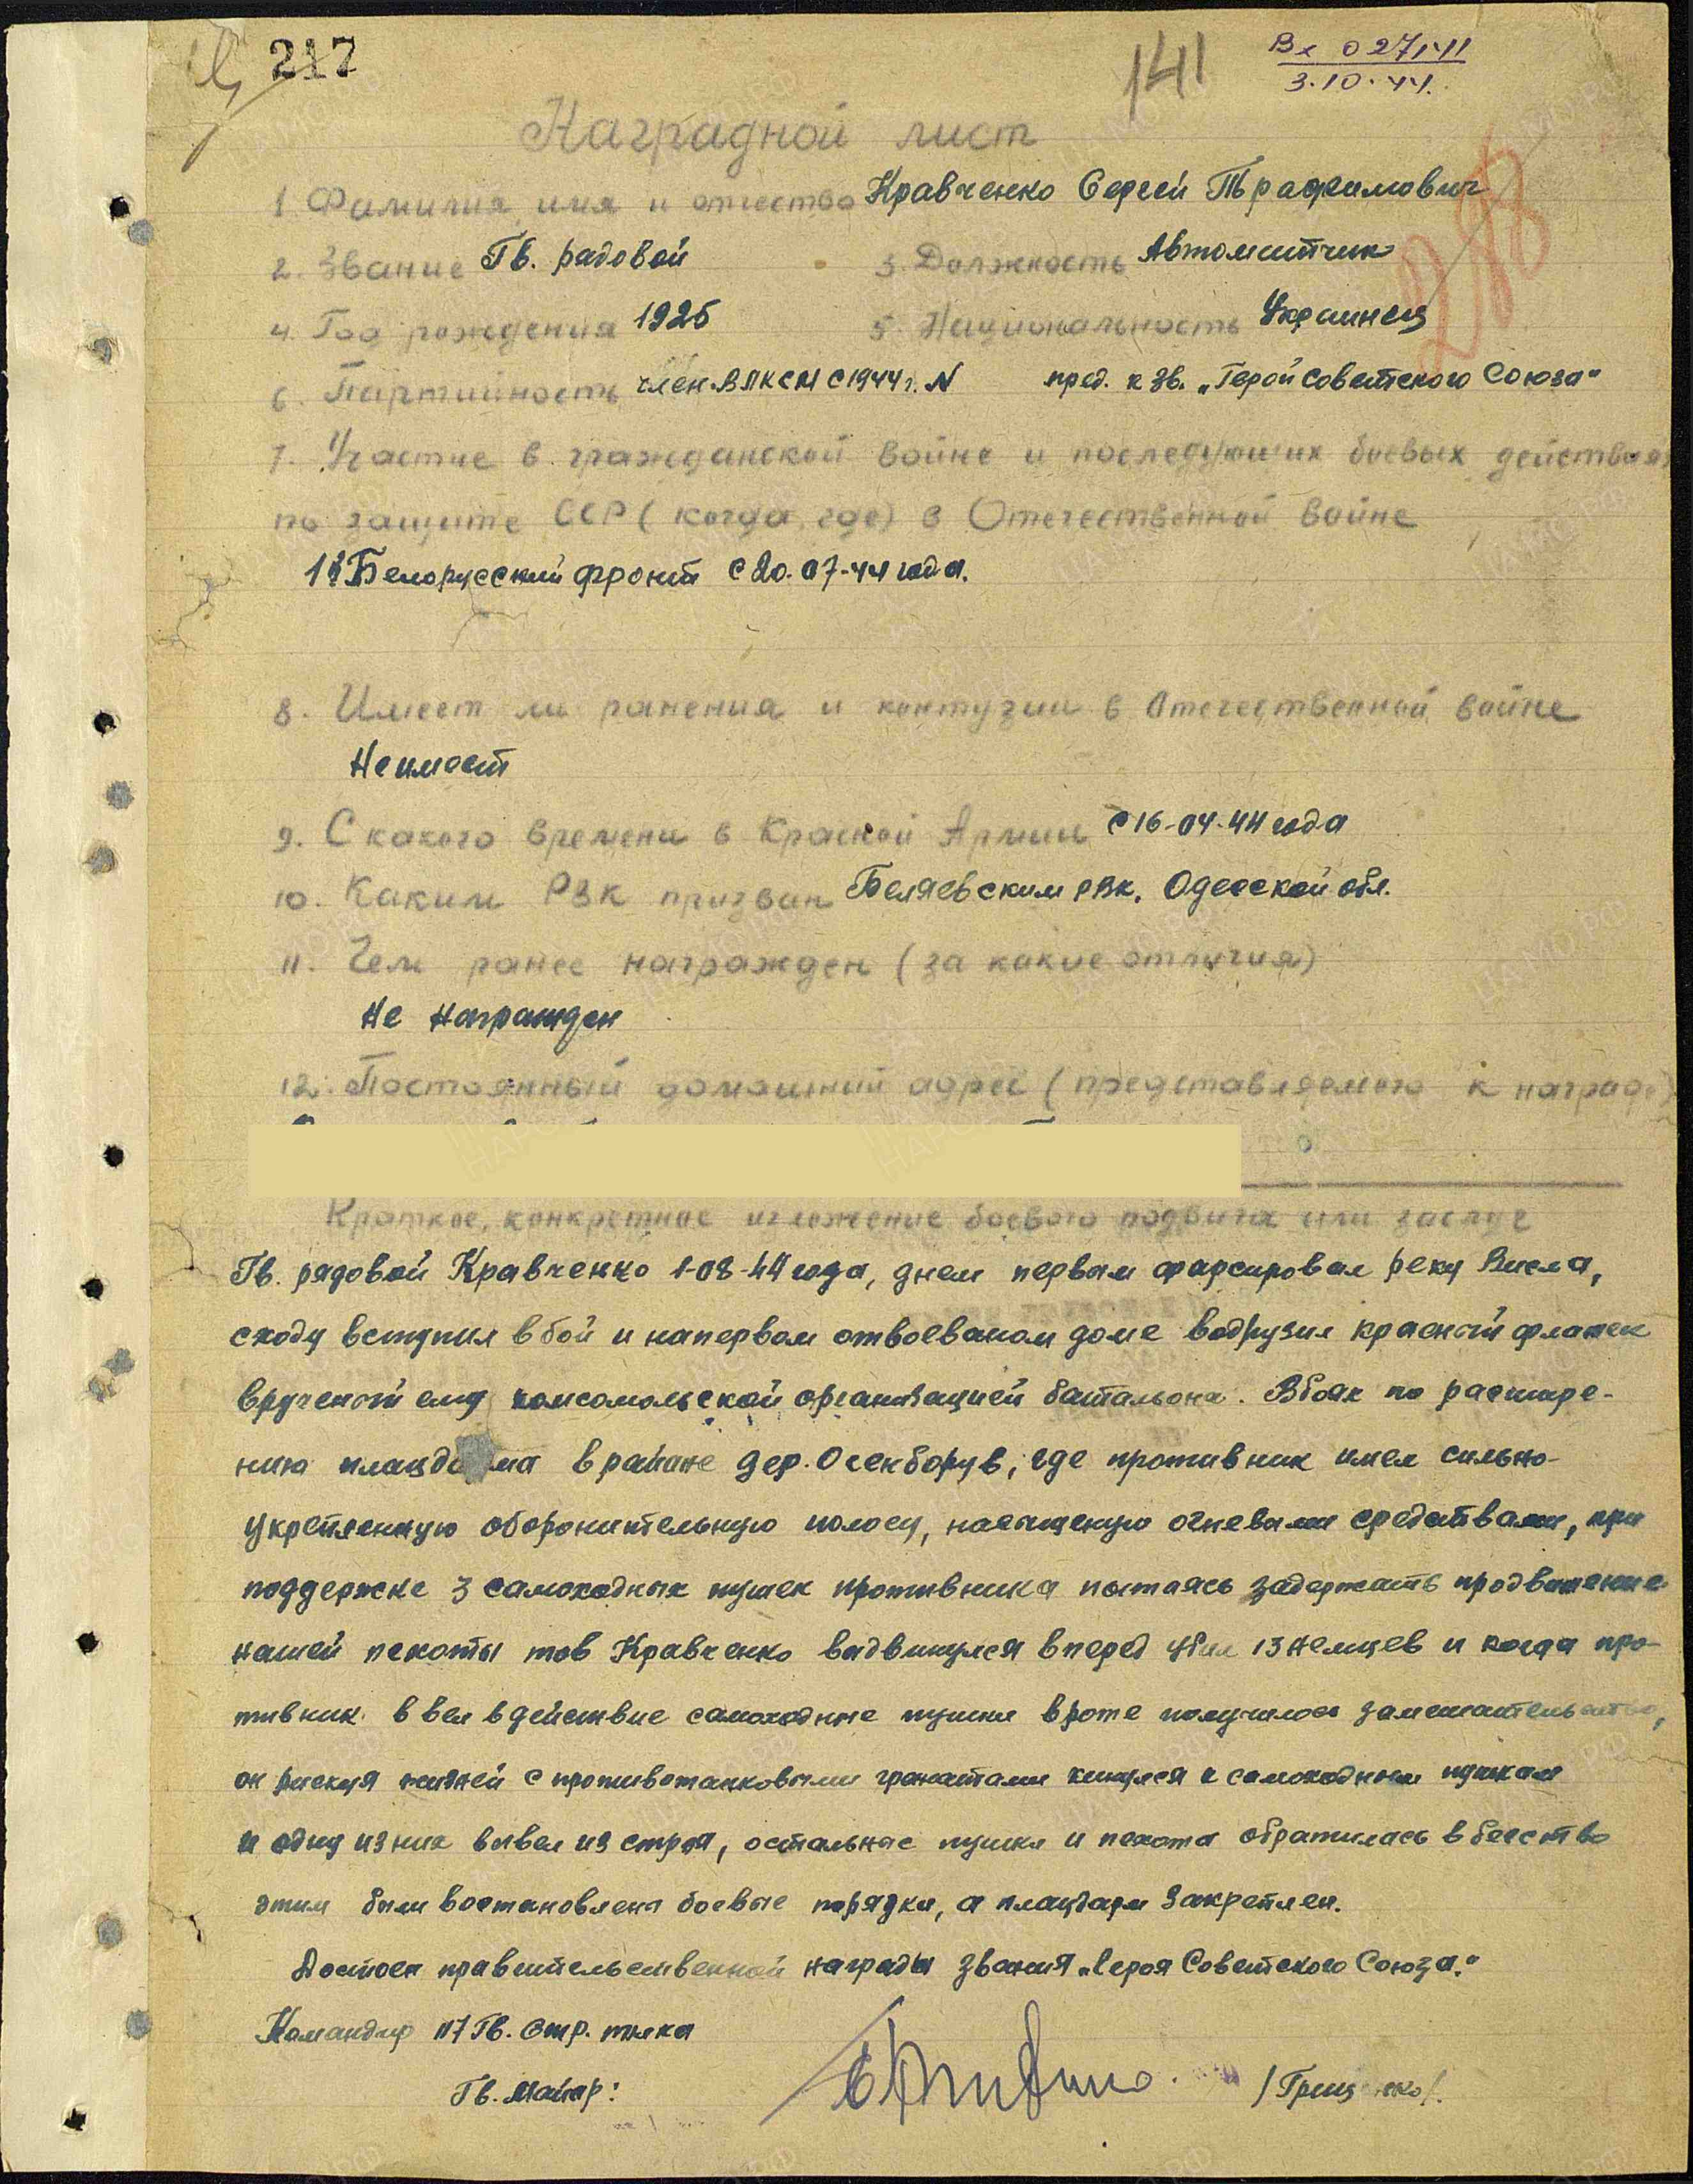 217
141
Вх 027141
3.10.44.
288
Наградной лист
1 Фамилия, имя и отчество Кравченко Сергей Трафимович
2. Звание Гв. радовой 3. Должность Автоматчик
4. Год рождения 1925 5. Национальность Украинец
6. Партийность член ВЛКСМ с 1944 г. N пред. к зв. „Герой Советского Союза"
7. Участие в гражданской войне и последующих боевых действиях
по защите ССР (когда, где) в Отечественной войне
1й Белорусский фронт с 20.07-44 года.
8. Имеет ли ранения и контузии в Отечественной войне
Не имеет
9. С какого времени в Красной Армии с 16-04-44 года
10. Каким РВК призван Беляевским РВК, Одесской обл.
11. Чем ранее награжден (за какие отличия)
Не награжден
12. Постоянный домашний адрес (представляемого к награде)
Краткое, конкретное изложение боевого подвига или заслуг
Гв. рядовой Кравченко 1-08-44 года, днем первым фарсировал реку Висла,
сходу вступил в бой и на первом отвоеваном доме водрузил красный флажек
врученый ему комсомольской организацией батальона. В боях по расшире-
нию плацдарма в районе дер. Осенборув, где противник имел сильно-
укрепленную оборонительную полосу, насыщеную огневыми средствами, при
поддержке 3 самоходных пушек противника пытаясь задержать продвижение
нашей пехоты тов Кравченко выдвинулся вперед убил 13 немцев и когда про-
тивник ввел в действие самоходные пушки в роте получилось замешательство,
он рискуя жизней с противотанковыми гранатами кинулся к самоходным пушкам
и одну из них вывел из строя, остальные пушки и пехота обратилась в бегство
этим были востановлены боевые порядки, а плацдарм закреплен.
Достоен правительственной награды звания „Героя Советского Союза."
Командир 117 Гв. Стр. полка
Гв. Майор: /Грищенко/.